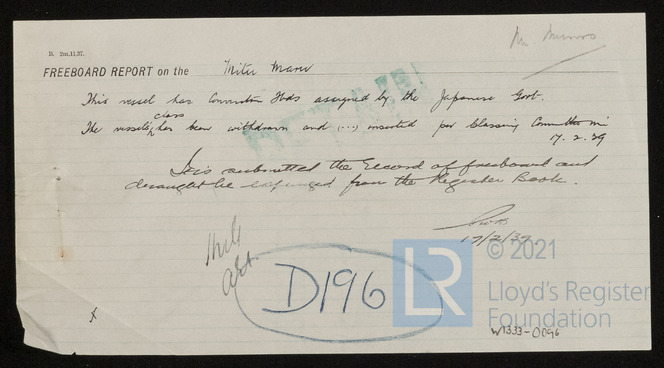 D. 2m.11.37.
Mr. Munro
FREEBOARD REPORT on the Mitu Maru
This vessel has Convention Fbds assigned by the Japanese Govt.
class
The vessel's ^ has been withdrawn and (...) inserted per Classing Committee min
17.2.39
It is submitted the record of freeboard and
draught be expunged from the Register Book.
17/2/39
D196
LR
© 2021
Lloyd's Register
Foundation
W1333-0096